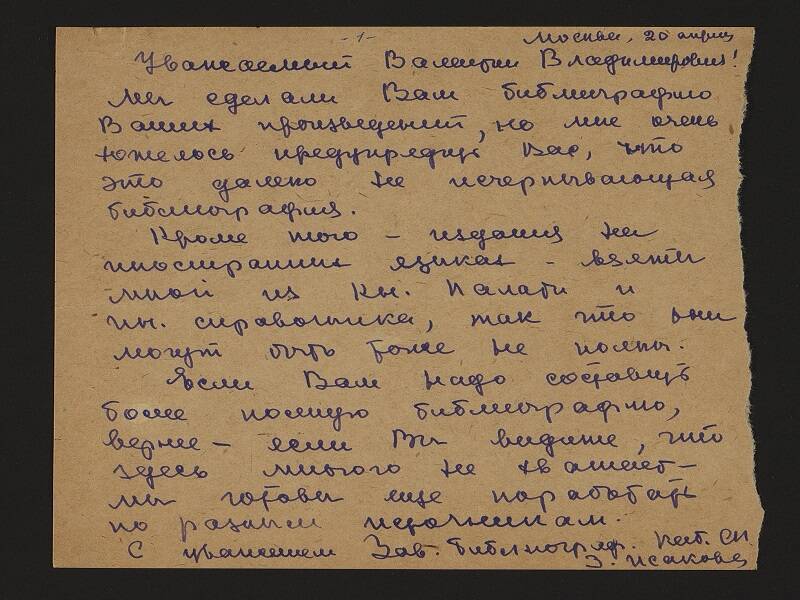 -1-
Москва, 20 апреля
Уважаемый Валентин Владимирович!
Мы сделали Вам библиографию
Ваших произведений, но мне очень
хотелось предупредить Вас, что
это далеко не исчерпывающая
библиография.
Кроме того – издания на
иностранных языках – взяты
мной из Кн. Палаты и
ин. справочника, так что они
могут быть тоже не полны.
Если Вам надо составить
более полную библиографию,
вернее – если Вы видите, что
здесь многого не хватает –
мы готовы еще поработать
по разным источникам.
С уважением Зав. библиограф. каб. СП
З. Исакова